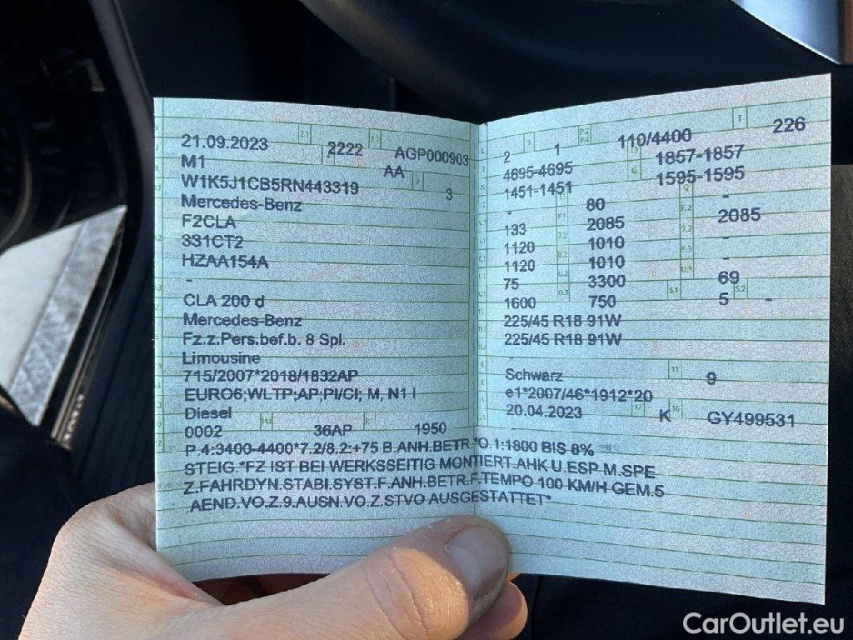 21.09.2023 2222 AGP000903
M1 AA
W1K5J1CB5RN443319 3
Mercedes-Benz
F2CLA
331CT2
HZAA154A
-
CLA 200 d
Mercedes-Benz
Fz.z.Pers.bef.b. 8 Spl.
Limousine
715/2007*2018/1832AP
EURO6;WLTP;AP;PI/CI; M, N1 I
Diesel
0002 36AP 1950
P.4:3400-4400*7.2/8.2:+75 B.ANH.BETR.*O.1:1800 BIS 8%
STEIG.*FZ IST BEI WERKSSEITIG MONTIERT.AHK U.ESP M.SPE
Z.FAHRDYN.STABI.SYST.F.ANH.BETR.F.TEMPO 100 KM/H GEM.5
.AEND.VO.Z.9.AUSN.VO.Z.STVO AUSGESTATTET*
2 1 110/4400 226
4695-4695 1857-1857
1451-1451 1595-1595
- 80 -
133 2085 2085
1120 1010 -
1120 1010 -
75 3300 69
1600 750 5 -
225/45 R18 91W
225/45 R18 91W
Schwarz 9
e1*2007/46*1912*20
20.04.2023 K GY499531
CarOutlet.eu